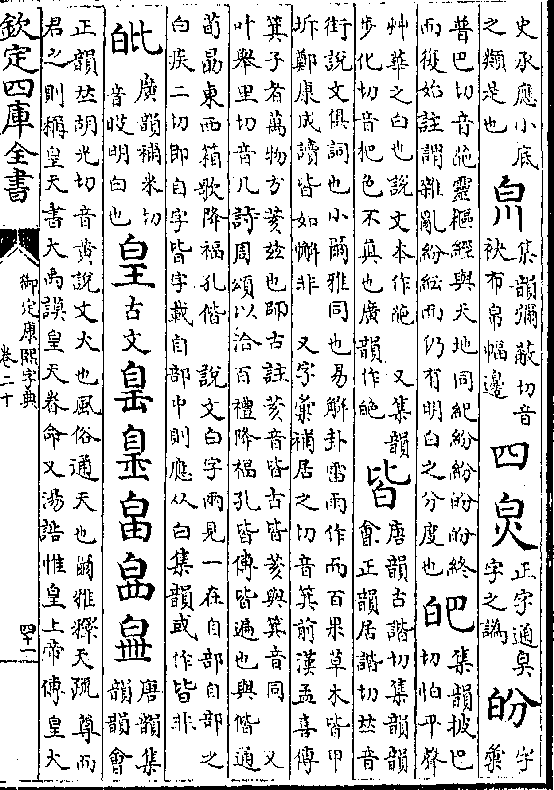 史承應小底
之類是也
𤽆
集韻彌蔽切音
袂布帛幅邊
四
炱
正字通臭
字之譌
皅
字彙
普巴切音葩靈樞經與天地同紀紛紛盼盼終
而復始註謂雜亂紛紜而仍有明白之分度也
皅
集韻披巴
切怕平聲
艸華之白也說文本作葩
又集韻
步化切音杷色不真也廣韻作皅
皆
唐韻古諧切集韻韻
會正韻居諧切𠀤音
街說文俱詞也小爾雅同也易解卦雷雨作而百果草木皆甲
坼鄭康成讀皆如懈非
又字彙補居之切音箕前漢孟喜傳
箕子者萬物方荄兹也師古註荄音皆古皆荄與箕音同
又
叶舉里切音几詩周頌以洽百禮降福孔皆傳皆遍也與偕通
荀勗東西箱歌降福孔偕
說文白字兩見一在自部自部之
白疾二切即自字皆字載自部中則應从白集韻或作皆非
𤽊
廣韻補米切
音𡛷明白也
皇
古文
𤽚
𤾑
唐韻集
韻韻會
正韻𠀤胡光切音黃說文大也風俗通天也爾雅釋天疏尊而
君之則稱皇天書大禹謨皇天眷命又湯誥惟皇上帝傳皇大
欽定四庫全書
御定康熙字典
卷二十